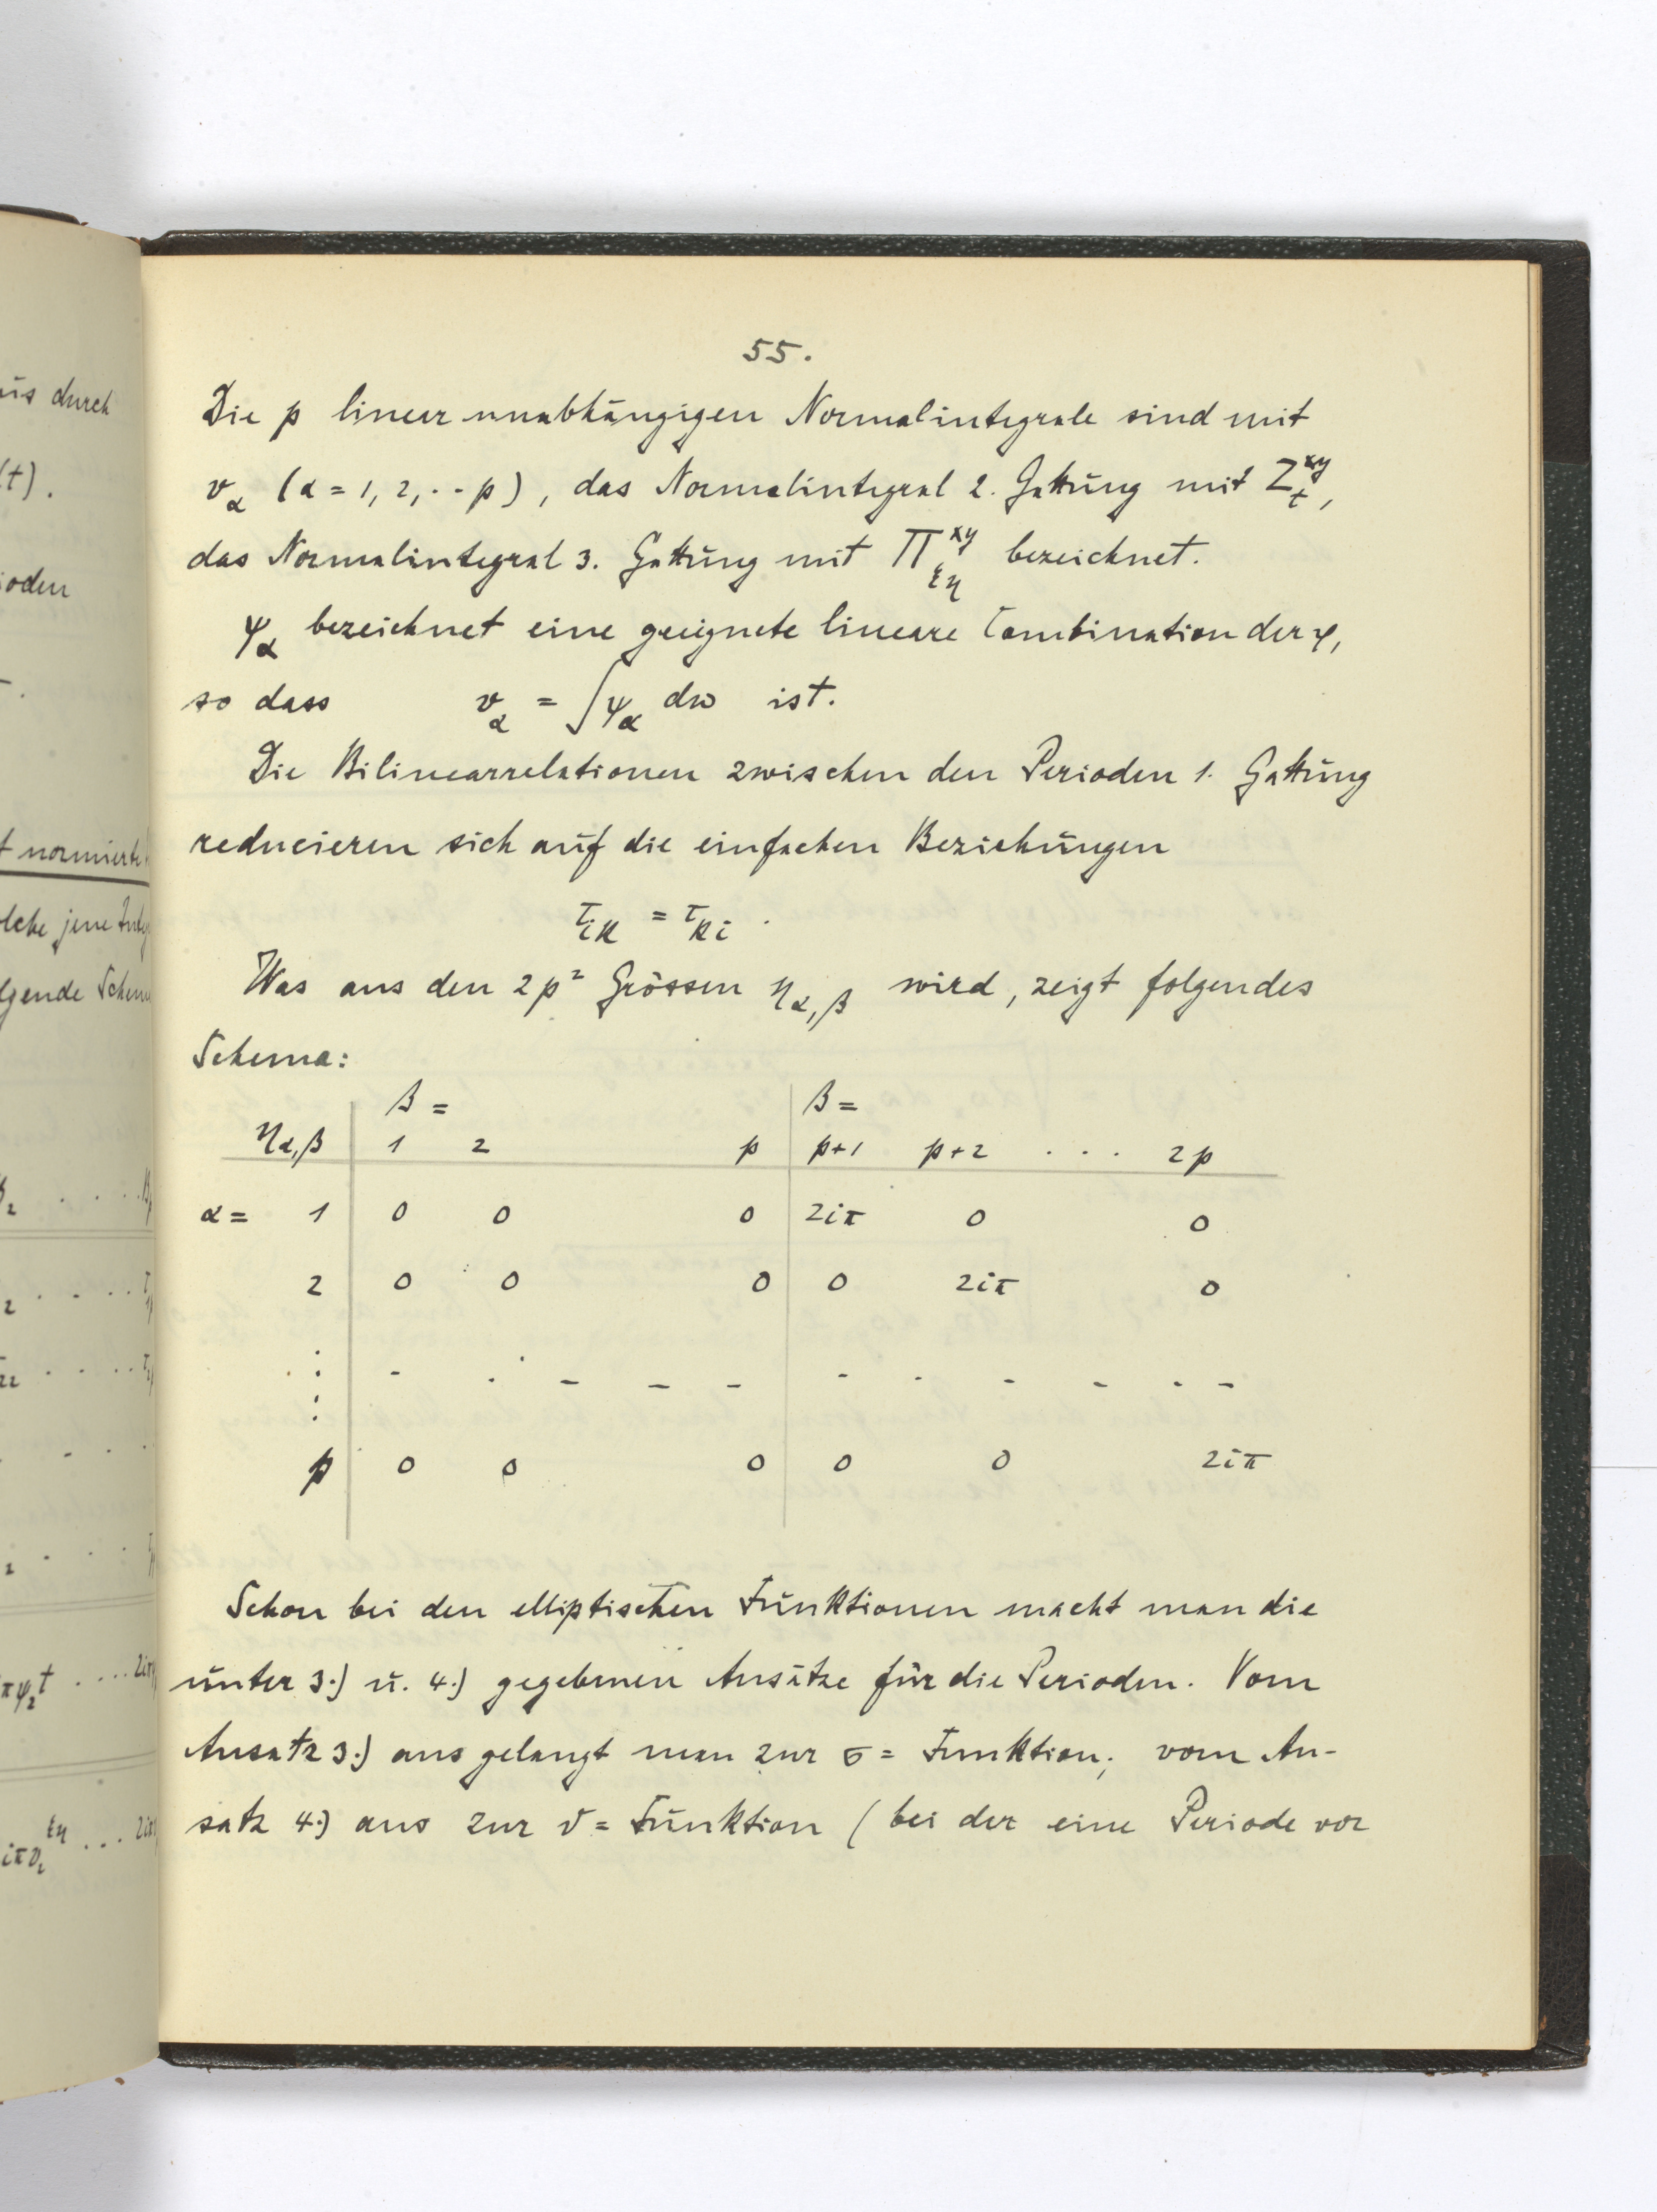 55.
Die p linear unabhängigen Normalintegrale sind mit
v_α (α = 1, 2, ·· p), das Normalintegral 2. Gattung mit Z_t^{xy},
das Normalintegral 3. Gattung mit Π_{ξη}^{xy} bezeichnet.
ψ_α bezeichnet eine geeignete lineare Combination der φ,
so dass v_α = ∫ψ_α dω ist.
Die Bilinearrelationen zwischen den Perioden 1. Gattung
reducieren sich auf die einfachen Beziehungen
τ_{ik} = τ_{ki}.
Was aus den 2p² Grössen η_{α,β} wird, zeigt folgendes
Schema:
β = β =
η_{α,β} 1 2 p p+1 p+2 . . . 2p
α = 1 0 0 0 2iπ 0 0
2 0 0 0 0 2iπ 0
⋮ - . - - - - . - - - -
p 0 0 0 0 0 2iπ
Schon bei den elliptischen Funktionen macht man die
unter 3.) u. 4.) gegebenen Ansätze für die Perioden. Vom
Ansatz 3.) aus gelangt man zur σ = Funktion; vom An-
satz 4.) aus zur ϑ = Funktion (bei der eine Periode vor
us durch
(t).
ioden
t normierte
olche jene
lgende